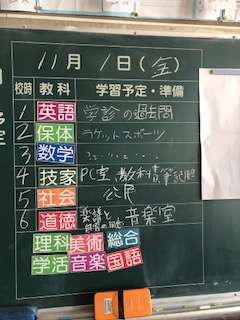 11月 1日(金)
校時 教科 学習予定・準備
1 英語 学診の過去問
2 保体 ラケットスポーツ
3 数学
4 技家 PC室、教科書、筆記用
5 社会 公民
6 道徳 音楽室
理科 美術 総合
学活 音楽 国語